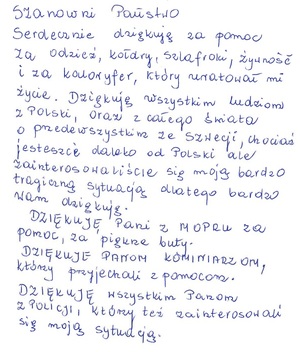 Szanowni Państwo
Serdecznie dziękuję za pomoc
za odzież, kołdry, szlafroki, żywność
i za kaloryfer, który uratował mi
życie. Dziękuję wszystkim ludziom
z Polski, oraz z całego świata
a przedewszystkim ze Szwecji, chociaż
jesteście daleko od Polski ale
zainteresowaliście się moją bardzo
tragiczną sytuacją dlatego bardzo
Wam dziękuję.
DZIĘKUJĘ Pani z MOPRU za
pomoc, za piękne buty.
DZIĘKUJĘ PANOM KOMINIARZOM,
który przyjechali z pomocom.
DZIĘKUJĘ wszystkim Panom
z Policji, który też zainteresowali
się moją sytuacją.